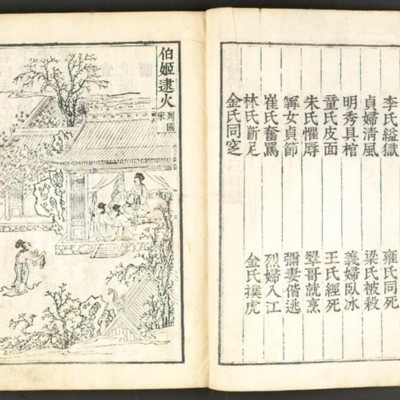 李氏縊獄 雍氏同死
貞婦清風 梁氏被殺
明秀具棺 義婦臥冰
童氏皮面 王氏經死
朱氏懼辱 翠哥就烹
甯女貞節 彌妻偕逃
崔氏奮罵 烈婦入江
林氏斷足 金氏撲虎
金氏同窆
伯姬逮火 列國宋